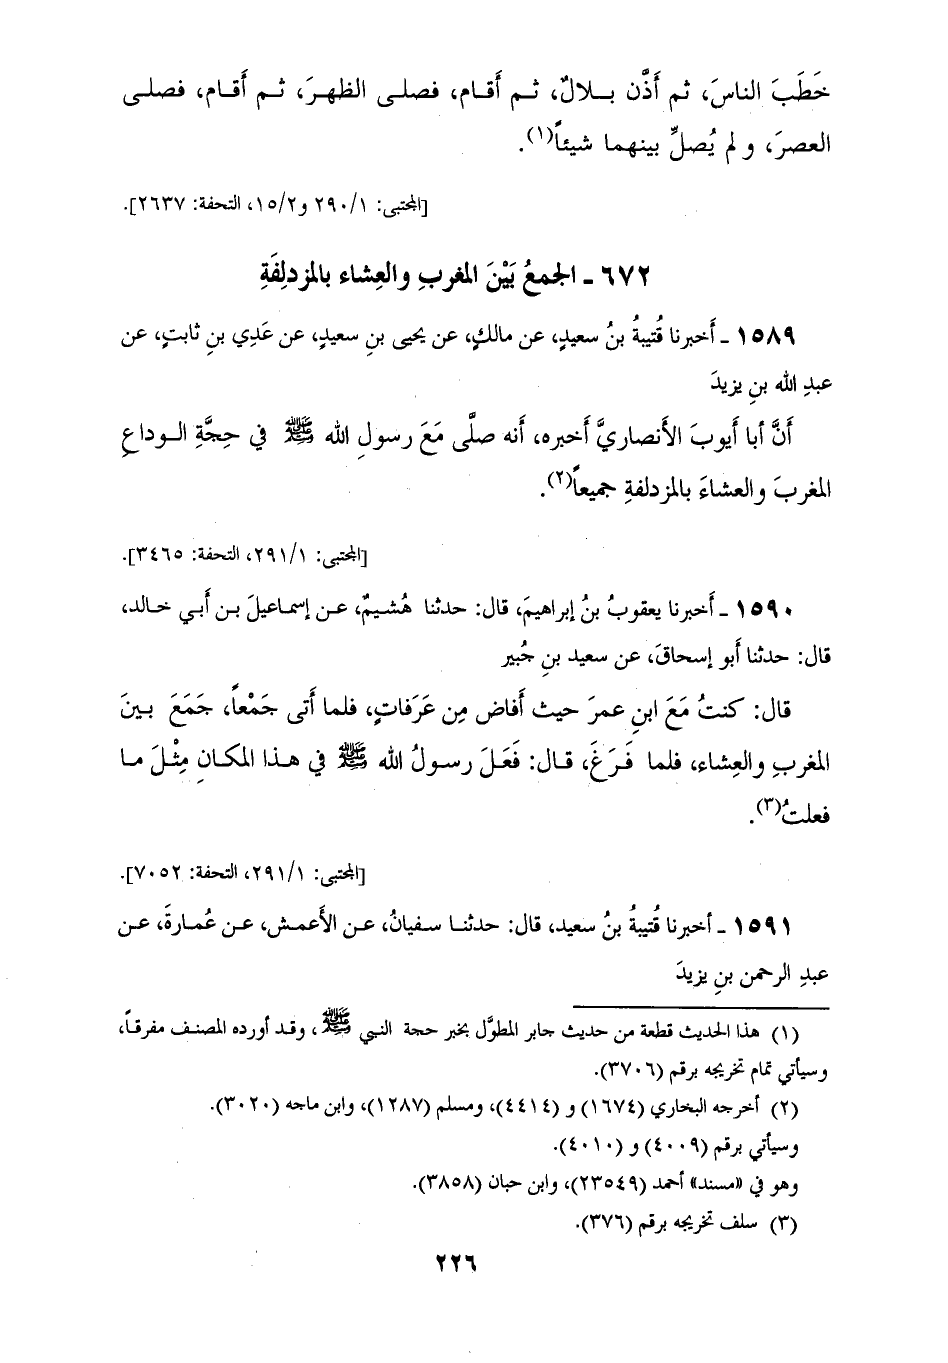 خَطَبَ الناسَ، ثم أَذَّن بـلالٌ، ثـم أَقـام، فصلـى الظهـرَ، ثـم أَقـام، فصلـى
العصرَ، و لم يُصلِّ بينهما شيئاً(١).
[المجتبى: ٢٩٠/١ و١٥/٢، التحفة: ٢٦٣٧].
٦٧٢ ـ الجمعُ بَيْنَ المغربِ والعِشاء بالمزدلِفَةِ
١٥٨٩ ـ أَخبرنا قُتيبةُ بنُ سعيدٍ، عن مالكٍ، عن يحيى بنِ سعيدٍ، عن عَدِي بنِ ثابتٍ، عن
عبدِ الله بنِ يزيدَ
أَنَّ أبا أَيوبَ الأنصاريَّ أَخبره، أنه صلَّى مَعَ رسولِ الله ﷺ في حِجَّةِ الـوداعِ
المغربَ والعشاءَ بالمزدلفةِ جميعاً(٢).
[المجتبى: ٢٩١/١، التحفة: ٣٤٦٥].
١٥٩٠ ـ أَخبرنا يعقوبُ بنُ إبراهيمَ، قال: حدثنا هُشـيمٌ، عـن إسمـاعيلَ بـن أَبـي خـالد،
قال: حدثنا أَبو إسحاقَ، عن سعيد بنِ جُبير
قال: كنتُ مَعَ ابنِ عمرَ حيث أَفاض مِن عَرَفاتٍ، فلما أَتى جَمْعاً، جَمَعَ بـينَ
المغربِ والعِشاء، فلما فَـرَغَ، قـال: فَعَلَ رسـولُ الله ﷺ في هـذا المكـانِ مِثْلَ مـا
فعلتُ(٣).
[المجتبى: ٢٩١/١، التحفة: ٧٠٥٢].
١٥٩١ ـ أخبرنا قُتيبةُ بنُ سعيد، قال: حدثنـا سـفيانُ، عـن الأعمـش، عـن عُمـارةَ، عـن
عبدِ الرحمن بنِ يزيدَ
(١) هذا الحديث قطعة من حديث جابر المطوَّل بخبر حجة النبي ﷺ، وقـد أورده المصنـف مفرقـاً،
وسيأتي تمام تخريجه برقم (٣٧٠٦).
(٢) أخرجه البخاري (١٦٧٤) و (٤٤١٤)، ومسلم (١٢٨٧)، وابن ماجه (٣٠٢٠).
وسيأتي برقم (٤٠٠٩) و (٤٠١٠).
وهو في «مسند» أحمد (٢٣٥٤٩)، وابن حبان (٣٨٥٨).
(٣) سلف تخريجه برقم (٣٧٦).
٢٢٦